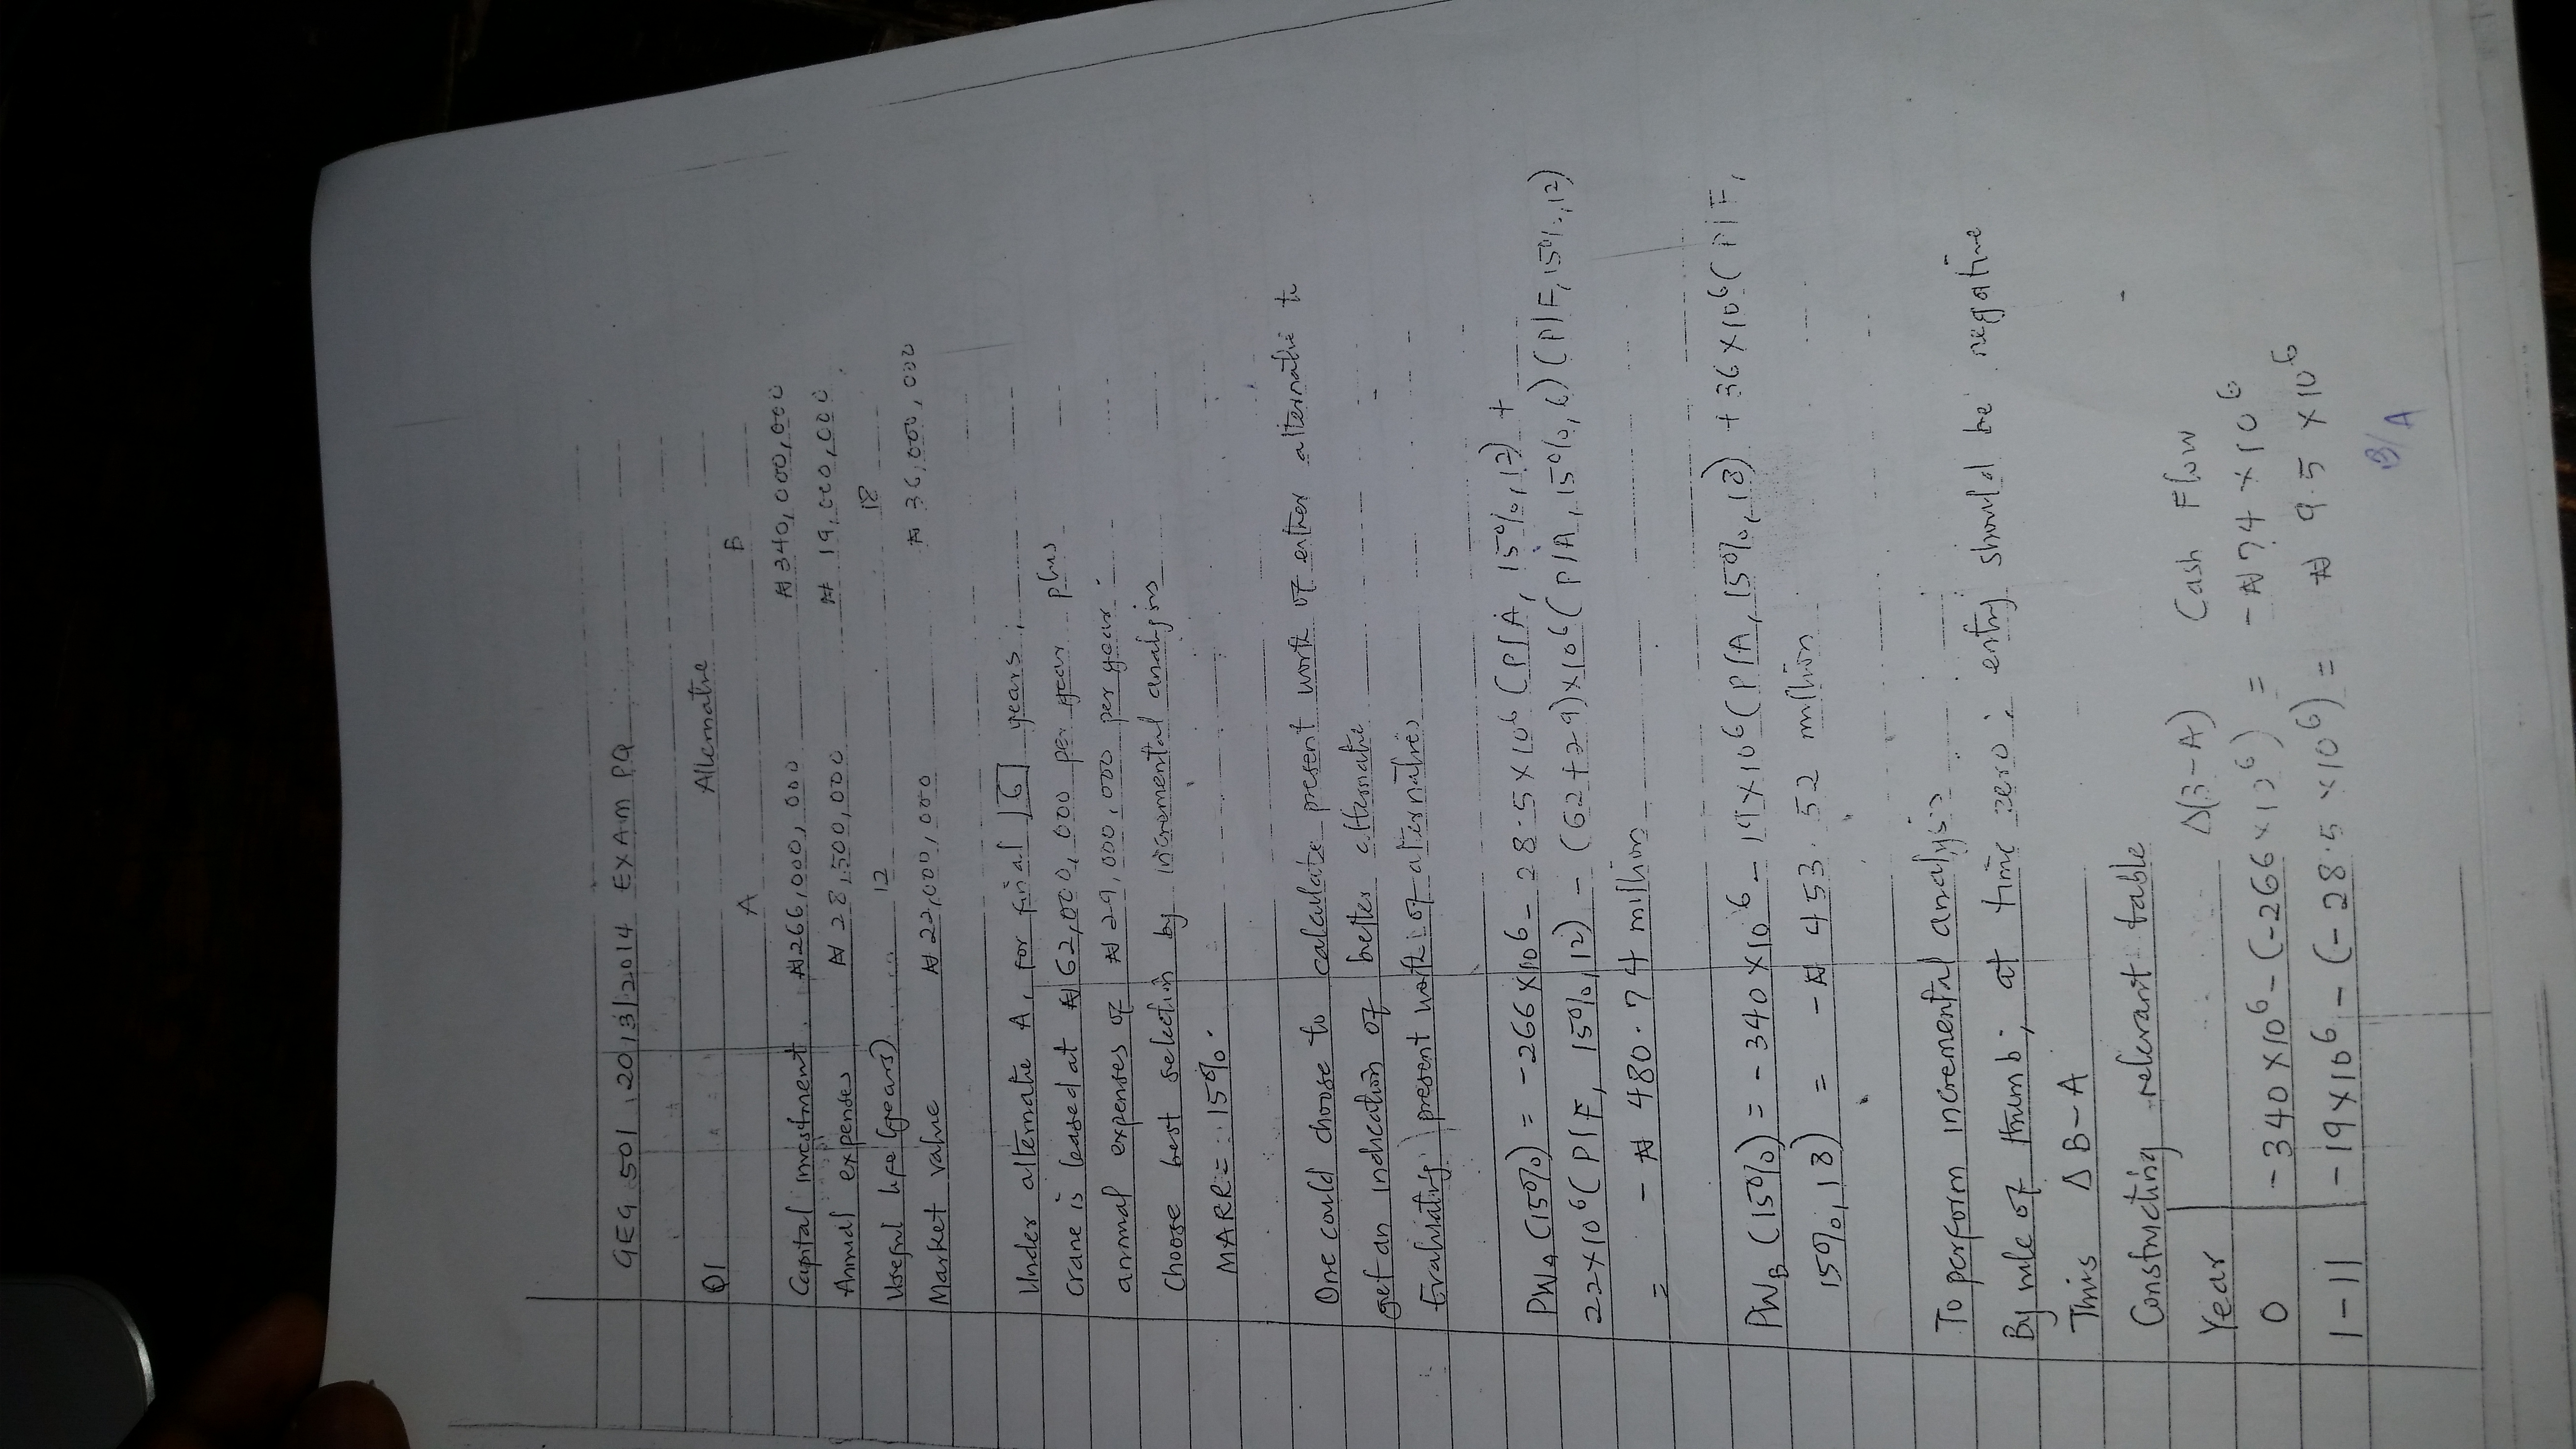 GEG 501 2013/2014 EXAM PQ
Q1 Alternative
A B
Capital investment. ₦266,000,000 ₦340,000,000
Annual expenses ₦28,500,000 ₦19,000,000
Useful life (years) 12 18
Market value ₦22,000,000 ₦36,000,000
Under alternative A, for final 6 years;
crane is leased at ₦62,000,000 per year plus
annual expenses of ₦29,000,000 per year.
Choose best selection by incremental analysis
MARR = 15%.
One could choose to calculate present worth of either alternative to
get an indication of better alternative
Evaluating present worth of alternatives
PWA (15%) = -266×10⁶ - 28.5×10⁶ (P/A, 15%, 12) +
22×10⁶ (P/F, 15%, 12) - (62+29)×10⁶ (P/A, 15%, 6) (P/F, 15%, 12)
= -₦480.74 million
PWB (15%) = -340×10⁶ - 19×10⁶ (P/A, 15%, 18) + 36×10⁶ (P/F,
15%, 18) = -₦453.52 million
To perform incremental analysis
By rule of thumb; at time zero; entry should be negative
Thus Δ B-A
Constructing relevant table
Year Δ(B-A) Cash Flow
0 -340×10⁶ - (-266×10⁶) = -₦74×10⁶
1-11 -19×10⁶ - (-28.5×10⁶) = ₦9.5×10⁶
B/A